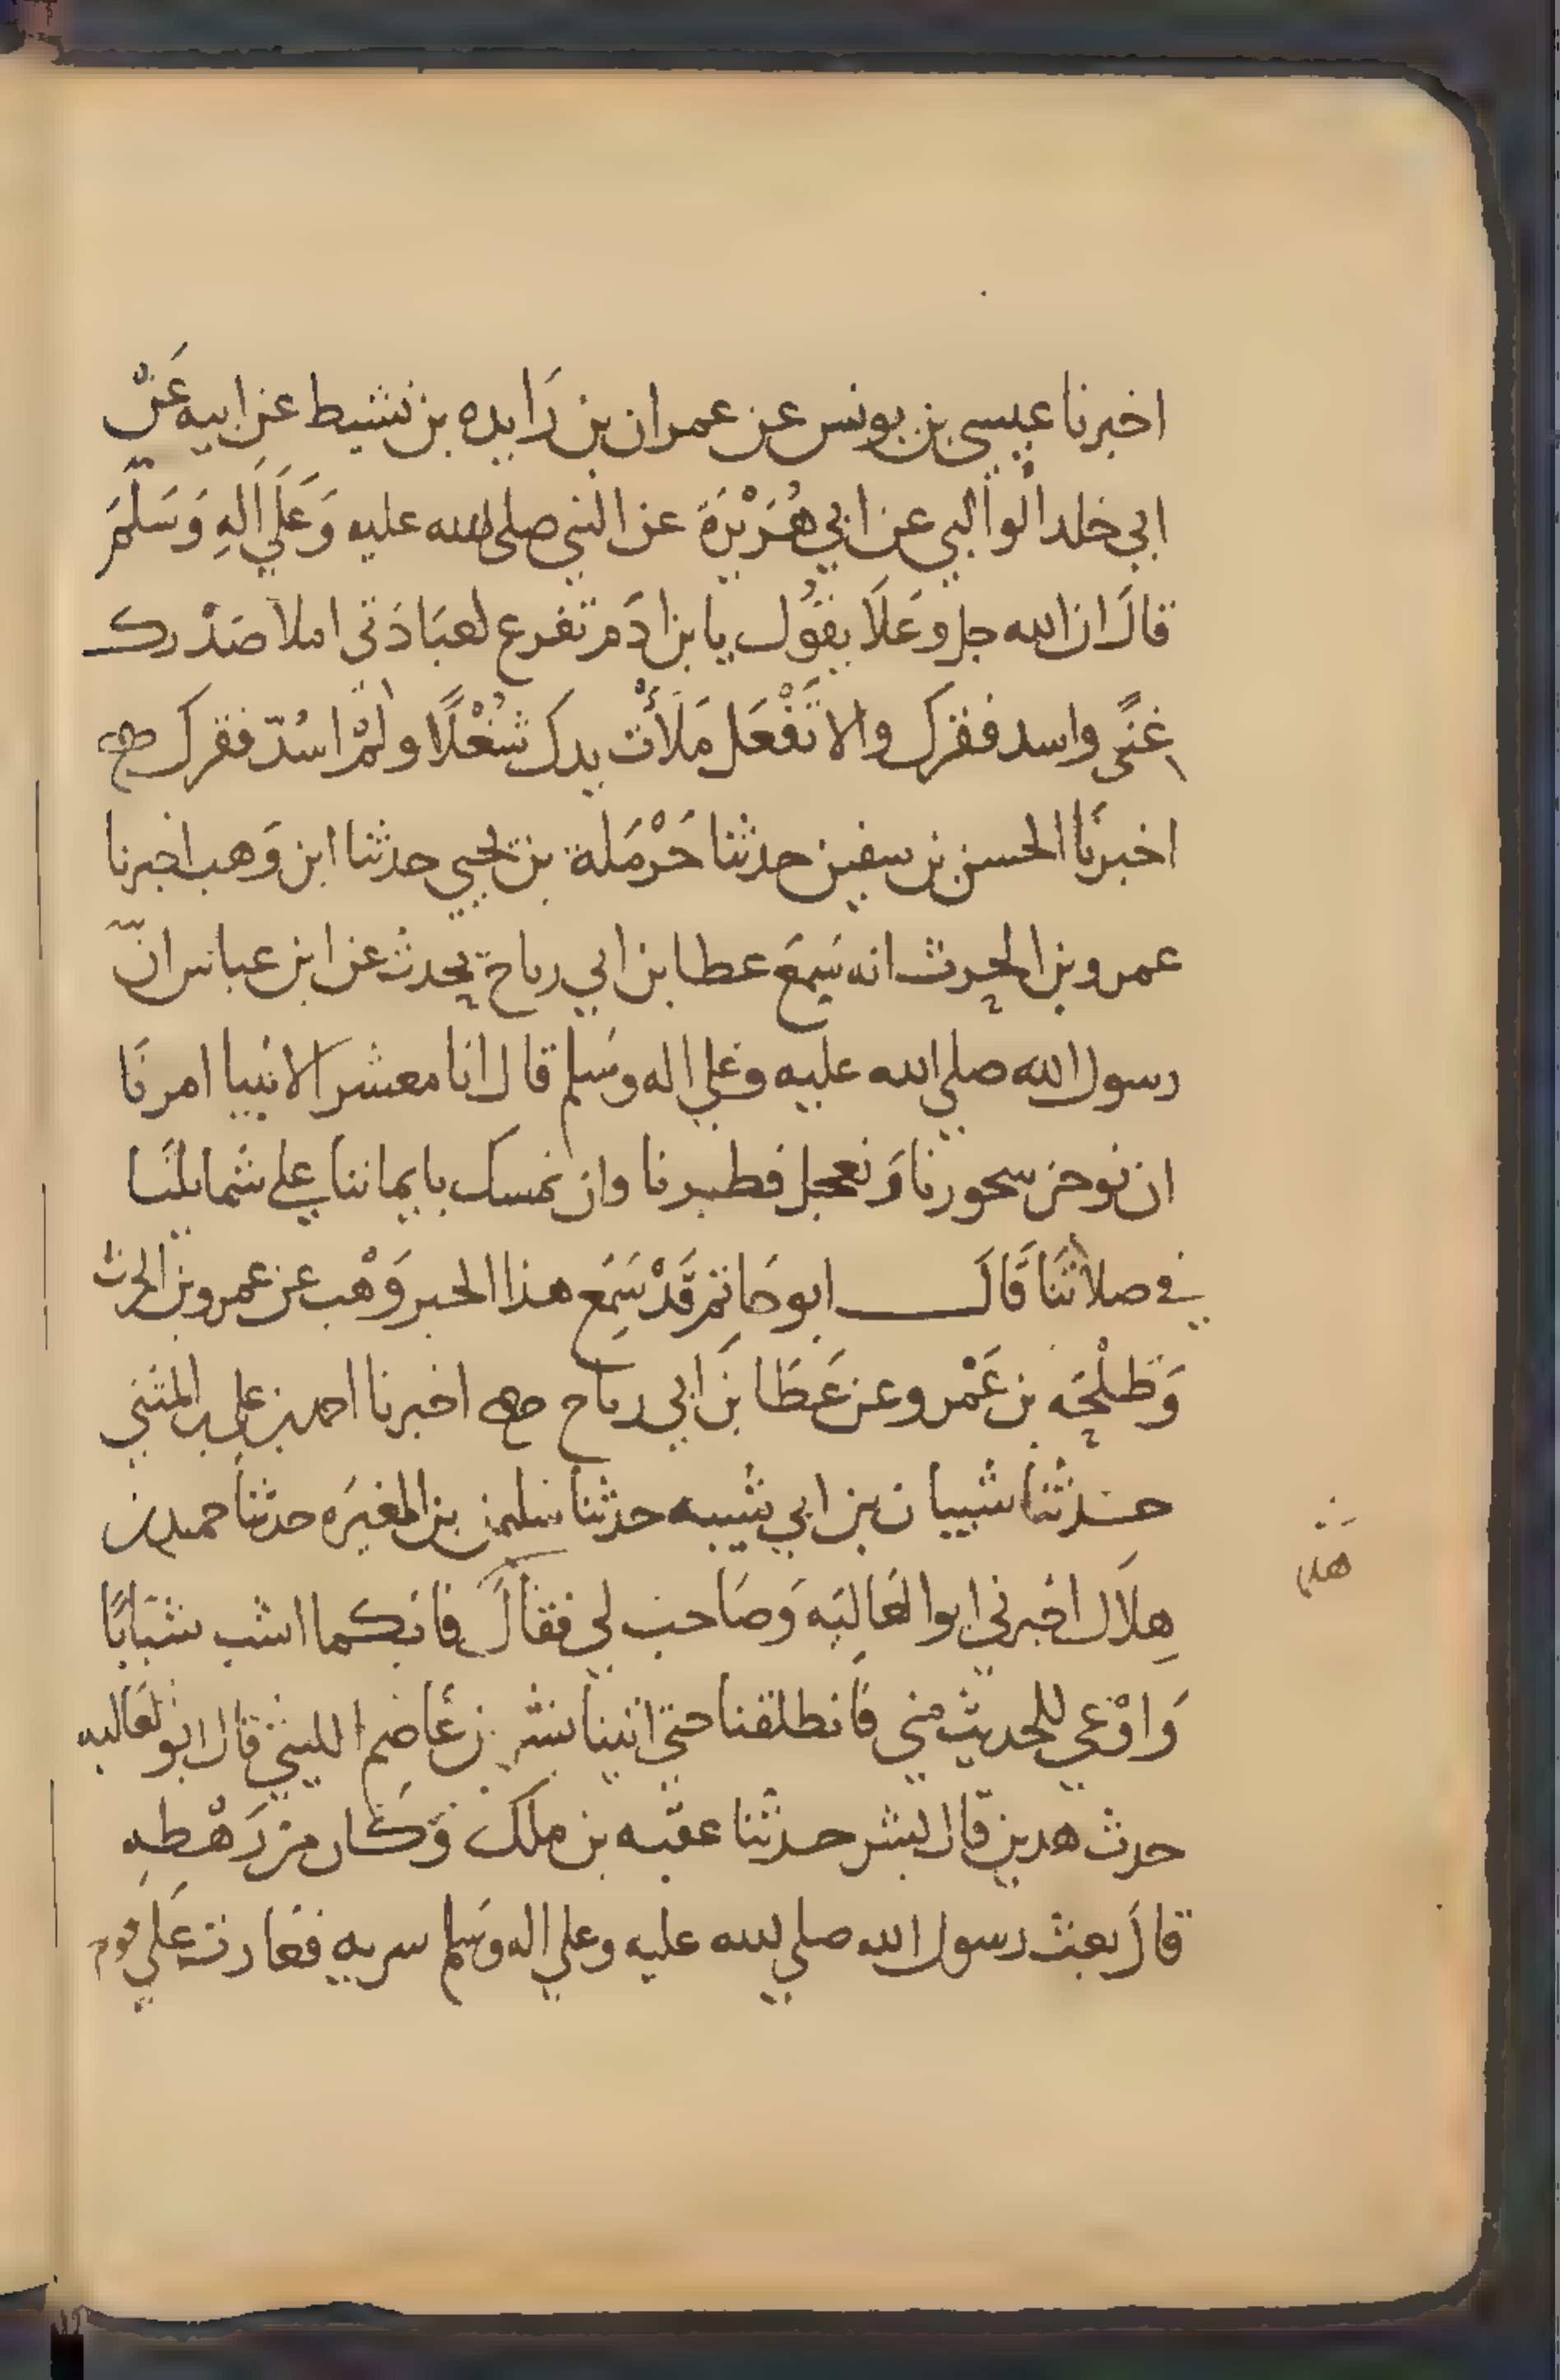 اخبرنا عيسى بن يونس عن عمران بن زايده بن نشيط عن ابيه عَنْ
ابي خلد الوالبي عن ابي هُرَيْرَة عن النبي صلى الله عليه وَعَلَي اَلِهِ وَسَلَّمَ
قالَ ان الله جل وعَلَا يقُول يا بن ادَم تفرع لعبَادَتي املا صَدْرك
غنًى واسد فقرك والا تَفْعَل مَلَأْت يدك شُغْلًا ولمْ اسُدّ فقرك
اخبرنَا الحسن بن سفين حدثنا حَرْمَلة بن يحيي حدثنا ابن وَهب اخبرنا
عمرو بن الحرث انه سَمِعَ عطا بن ابي رباح يحدث عن ابن عباس انّ
رسول الله صلي الله عليه وعلي اله وسَلم قال انا معشر الانبيا امرنَا
ان نوخر سحورنا وَنعجل فطرنا وان نمسك بايماننا علي شمايلنَا
في صلاتنَا قَالَ ابو حَاتم قَدْ سَمِعَ هذا الخبر وَهْب عن عمرو بن الحرث
وَطلْحَه بن عَمْرو عن عَطَا بن ابي رباح اخبرنا احمد بن علي بن المثني
حدثنا شيبان بن ابي شيبه حدثنا سليمن بن المغيَره حدثنا حميد بن
هِلَال اخبرني ابوا لعَاليَه وَصَاحب لي فقالَ فانكما اشب شبَابًا
وَاوْعي للحديث مني فَانطلقنا حتي اتينا بشر بن عَاصم الليثي قال ابو لعَاليه
حدث هدين قال بشر حدثنا عقبه بن ملك وَكَان من رَهْطهِ
قالَ بعث رسول الله صلي الله عليه وعلي اله وسَلم سريه فغارت عَلَي قوم